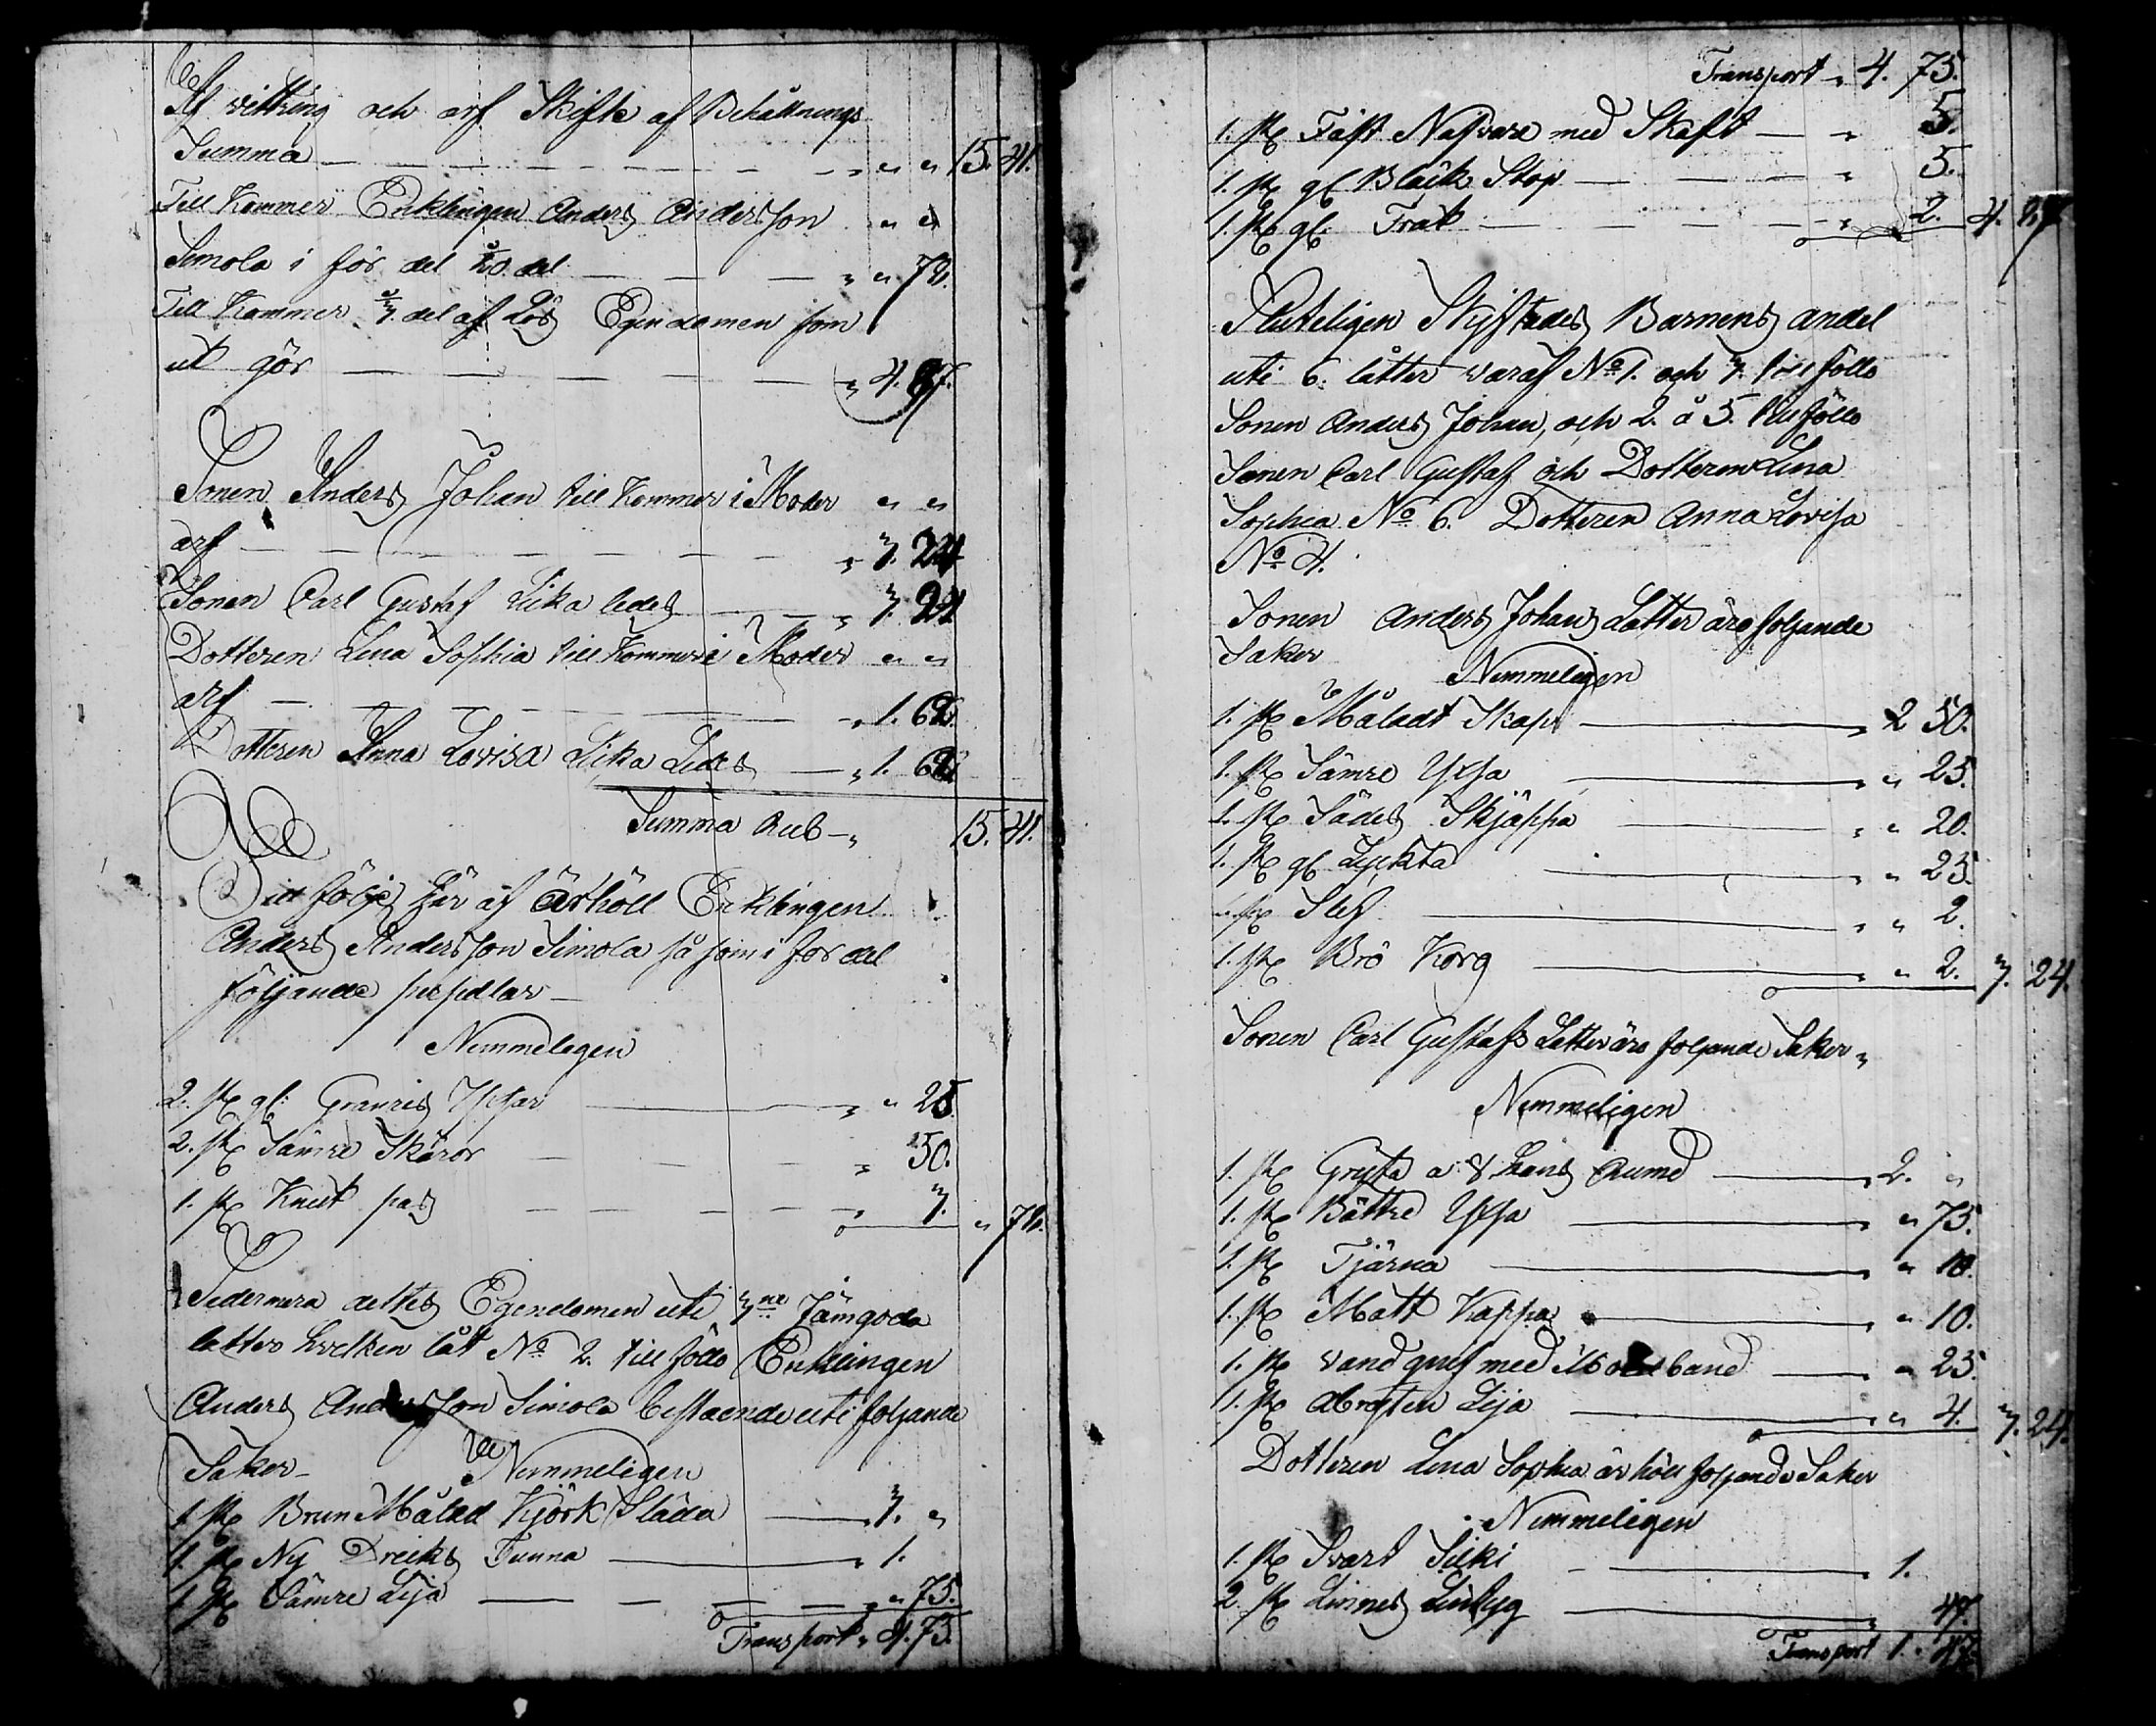 Af vittring och arf Skifte af Behållnings
Summa — " " 15. 41.
Till Kommer Enklingen Anders Andersson " "
Simola i för del 1/20 del — " " 78.
Till Kommer 2/7 del af Lös Egendomen som
ut gör — " 4. 87.
Sonen Anders Johan till Kommer i Moder " "
arf — " 3. 24
Sonen Carl Gustaf Lika ledes — " 3. 24
Dotteren Lena Sophia till Kommer i Moder " "
arf — " 1. 62
Dotteren Anna Lovisa Lika Ledes — " 1. 62
Summa Rub — " 15. 41.
Till följe här af ärhöll Enklingen
Anders Andersson Simola så som i for del
följjande
Nemmelegen
2. st gl: Yxsar — " " 25.
2. st Sämre Skäror — " 50.
1. st Knut pas — " 3. " 78.
Sedermera deltes Egendomen uti 7ne Jämgoda
latter hvelken låt No 2. till föllo Enklingen
Anders Andersson Simola bestaende uti foljande
Saker — Nemmeligen
1 st Brun Målad Kjörk Släda — 3. "
1. st Ny Dreiks Tunna — " 1.
1 st Sämre Lija — " " 75.
Transport " 4. 75.
Transport " 4. 75.
1. st Fäst Nafvare med Skaft — " 5.
1. st gl Bläik Stop — " 5.
1. st gl. Frak — " 2. 4. 87
Sluteligen Skyftades Barnens andel
uti 6. låtter varaf No 1. och 3. till föllo
Sonen Anders Johan, och 2. å 5. till föllo
Sonen Carl Gustaf och Dotteren Lena
Sophia No 6. Dotteren Anna Lovisa
No 4.
Sonen Anders Johans Latter äro foljande
Saker Nemmeligen
1. st Måladt Skap — " 2 50.
1. st Sämre Yxsa — " " 25.
1. st Sädes Skjäppa — " " 20.
1. st gl Lyckta — " " 25.
1. st Slef — " " 2.
1. st Brö Korg — " " 2. 3. 24.
Sonen Carl Gustafs Latter äro foljande Saker "
Nemmeligen
1. st Gryta a 8 Kans Rumd — " 2. "
1. st Bättre Yxsa — " " 75.
1. st Tjärna — " " 10.
1. st Mått Kappa — " " 10.
1. st vand med band — " " 25.
1. st Abrosten Lija — " " 4. 3. 24.
Dotteren Lena Sophia är höll foljande Saker
Nemmeligen
1. st Svart Silki — " 1.
2. st Linnes — " 47
Transport 1. 47.